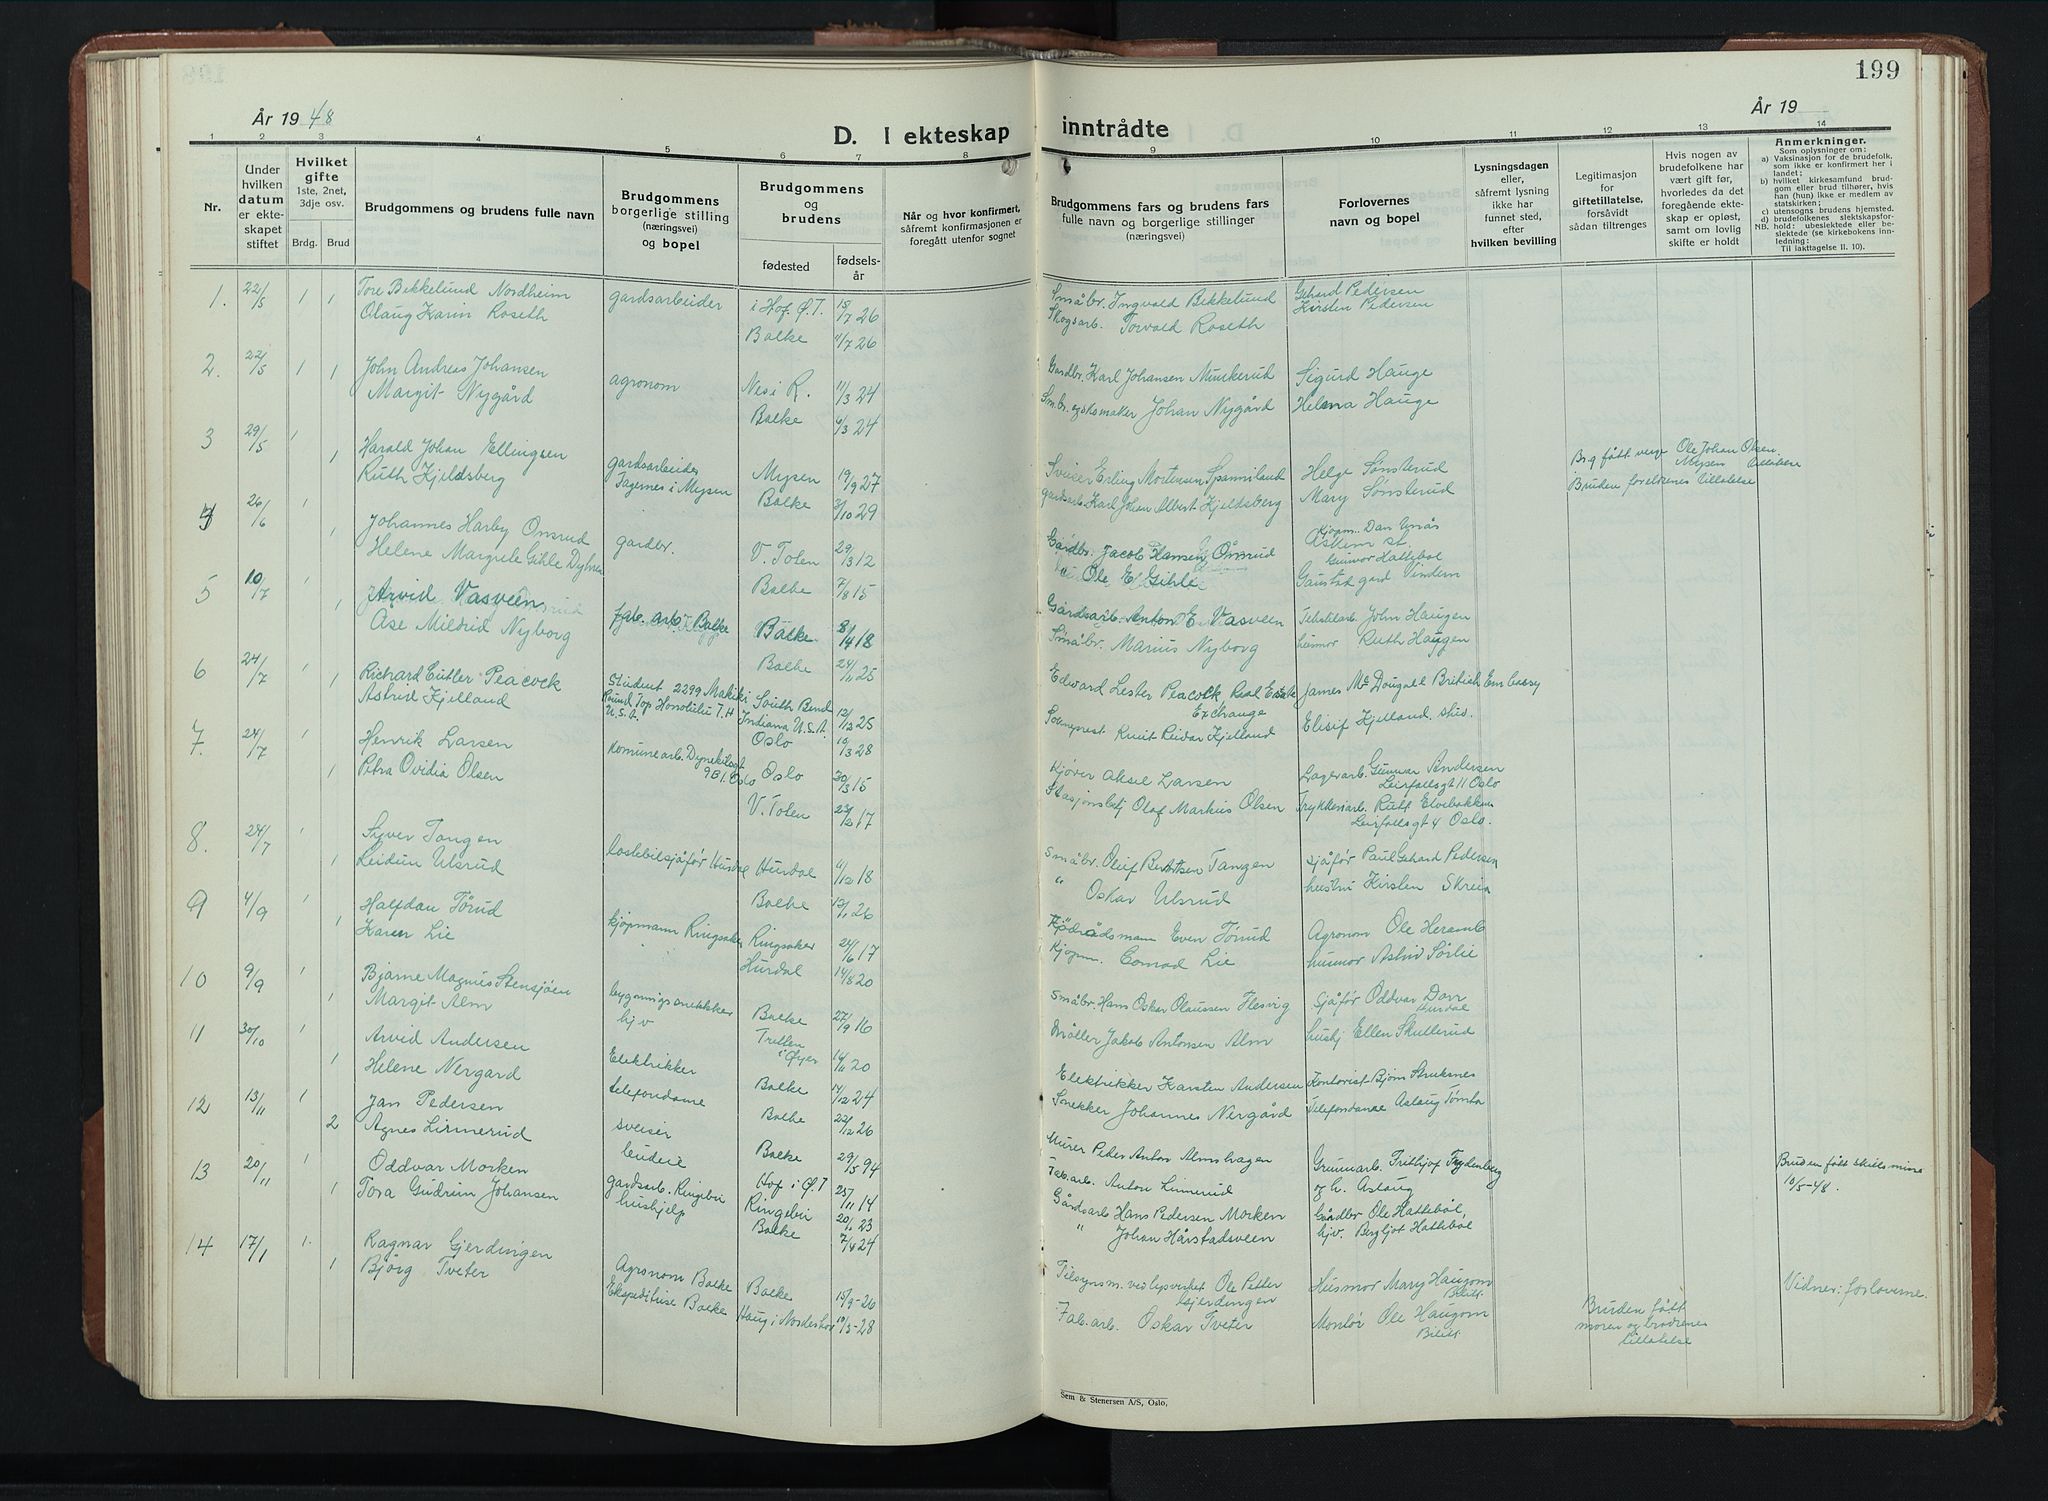 199
År 1948
D. I ekteskap inntrådte
År 19
1 2 3 4 5 6 7 8 9 10 11 12 13 14
Nr.
Under hvilken datum er ekteskapet stiftet
Hvilket gifte
1ste, 2net, 3dje osv.
Brdg. Brud
Brudgommens og brudens fulle navn
Brudgommens borgerlige stilling (næringsvei) og bopel
Brudgommens og brudens
fødested
fødselsår
Når og hvor konfirmert, såfremt konfirmasjonen er foregått utenfor sognet
Brudgommens fars og brudens fars fulle navn og borgerlige stillinger (næringsvei)
Forlovernes navn og bopel
Lysningsdagen eller, såfremt lysning ikke har funnet sted, efter hvilken bevilling
Legitimasjon for giftetillatelse, forsåvidt sådan tiltrenges
Hvis nogen av brudefolkene har vært gift før, hvorledes da det foregående ekteskap er opløst, samt om lovlig skifte er holdt
Anmerkninger.
Som oplysninger om:
a) Vaksinasjon for de brudefolk, som ikke er konfirmert her i landet;
b) hvilket kirkesamfund brudgom eller brud tilhører, hvis han (hun) ikke er medlem av statskirken;
c) utensogns brudens hjemsted.
d) brudefolkenes slektskapsforhold: ubeslektede eller beslektede (se kirkebokens innledning:
NB.
Til iakttagelse II. 10).
1. 22/5 1 1 Tore Bekkelund Nordheim gardsarbeider i Hof. Ø.T. 18/7 26 Småbr. Ingvald Bekkelund Gehard Pedersen
Olaug Karin Roseth Balke 11/7 26 Skogsarb. Torvald Roseth Kirsten Pedersen
2. 22/5 1 1 John Andreas Johansen agronom Nes i R. 11/3 24 Gardbr. Karl Johansen Munkerud Sigurd Hauge
Margit Nygård Balke 6/3 24 Sm.br. og skomaker Johan Nygård Helena Hauge
3 29/5 1 1 Harald Johan Ellingsen gardsarbeider Mysen 19/9 27 Sveiser Erling Mortensen Spannsland Helge Sønsterud Brg fått verge Ole Johan Olsen Mysen tillatelse
Ruth Kjeldsberg i Mysen Balke 3/10 29 gardsarb. Karl Johan Albert Kjeldsberg Mary Sønsterud Bruden foreldrenes tillatelse
4 26/6 1 1 Johannes Harby Omsrud gardbr. V. Toten 29/3 12 Gårdbr. Jacob Hansen Ømrud Kjøpm. Dan Enås Askim st.
Helene Margrete Gihle Balke 7/8 15 " Ole E Gihle Gunvor Hattebøl
5 10/7 1 Arvid Vasveen fab. arb. Balke Balke 8/4 18 Gårdsarb. Anton E. Vasveen John Haugen
Åse Mildrid Nyborg Balke 24/11 25 Småbr. Marius Nyborg husmor Ruth Haugen
6 24/7 1 1 Richard Cutler Peacock Student 2299 Makiki Round Top Honolulu T.H U.S.A. South Bend Indiana U.S.A. 12/12 25 Edward Lester Peacock Real Estate Exchange James Mc Dougall British Embassy
Astrid Kjelland Oslo 10/3 28 Sogneprest Knut Reidar Kjelland Elisif Kjelland, stud.
7. 24/7 1 1 Henrik Larsen Komunearb. Dynekilsgt 9 B I. Oslo Oslo 30/3 15 Kjører Aksel Larsen Lagerarb. Gunnar Andersen Leirfallsgt 11 Oslo
Petra Ovidia Olsen V. Toten 23/2 17 Stasjonsbetj Olaf Markus Olsen Trykkeriarb. Ruth Elvebakken Leirfallsgt 4 Oslo.
8. 24/7 1 1 Syver Tangen lastebilsjåfør Hurdal Hurdal 6/12 18 Småbr. Oluf Berntsen Tangen sjåfør Paul Gehard Pedersen
Leidun Ulsrud Balke 13/1 26 " Oskar Ulsrud hustru Kirsten Skreia
9 4/9 1 1 Halfdan Tørud kjøpmann Ringsaker Ringsaker 24/6 17 Even Tørud Agronom Ole Heramb
Karen Lie Hurdal 14/8 20 Kjøpm. Conrad Lie husmor Astrid Sørlie
10 9/9 1 1 Bjarne Magnus Stensjøen bygningssnekker Balke 27/9 16 Småbr. Hans Oskar Olaussen Flesvig sjåfør Oddvar Dorr Hurdal
Margit Alm hjv Tretten i Øyer 14/11 20 Møller Jakob Antonsen Alm hushj Ellen Skutterud
11 30/10 1 1 Arvid Andersen Elektrikker Balke 14/12 24 Elektrikker Karsten Andersen Kontorist Bjørn Struksnes
Helene Nergård telefondame Balke 22/12 26 Snekker Johannes Nergård Telefondame Aslaug Tømta
12 13/11 1 2 Jan Pedersen sveiser Balke 29/5 94 Murer Peder Anton Almshagen Grunnarb. Frithjof Frydenberg
Agnes Linnerud Hof i Ø.T 25/11 14 Fab.arb. Anton Linnerud og h. Aslaug Bruden fått skilsmisse 10/5-48.
13 20/11 1 1 Oddvar Morken gardsarb. Ringebu Ringebu 20/1 23 Gårdsarb Hans Pedersen Morken Gårdbr Ole Hattebøl,
Tora Gudrun Johansen hushjelp Balke 7/4 24 " Johan Hårstadsveen hjv. Bergljot Hattebøl
14 17/1 1. 1 Ragnar Gjerdingen Agronom Balke Balke 15/9-26 Tilsynsm. ved lysverket Ole Petter Gjerdingen Husmor Mary Haugom Bilitt. Vidner: forloverne.
Bjørg Tveter Ekspeditrise Balke Haug i Norderhov 19/5-28 Fab.arb. Oskar Tveter Montør Ole Haugom Bilitt Bruden fått moren og brødrenes tillatelse
Sem & Stenersen A/S, Oslo.